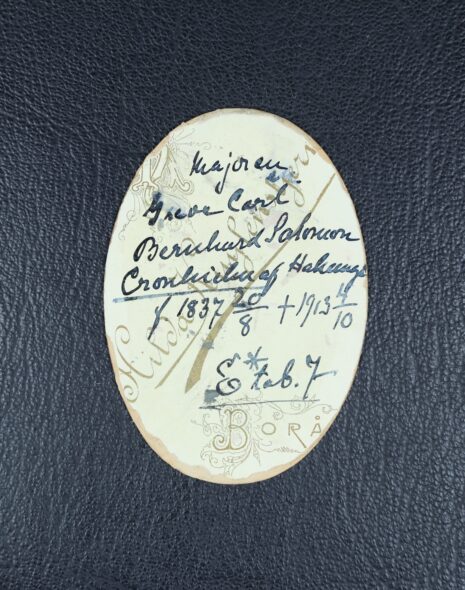 Majoren
Greve Carl
Bernhard Salomon
Cronhielm af Hakunge
f 1837 20/8 + 1913 4/10
E* tab. 7
Hilda
BORÅ